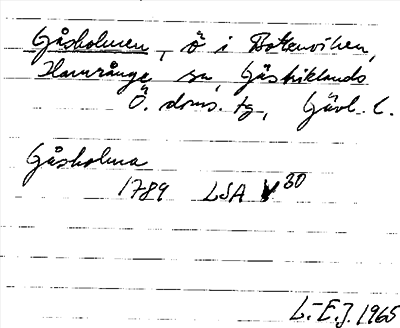 Gåsholmen, ö i Bottenviken,
Hamrånge sn, Gästriklands
Ö. doms. tg., Gävl. l.
Gåsholma
1789 LSA V 30
L-E.J. 1965